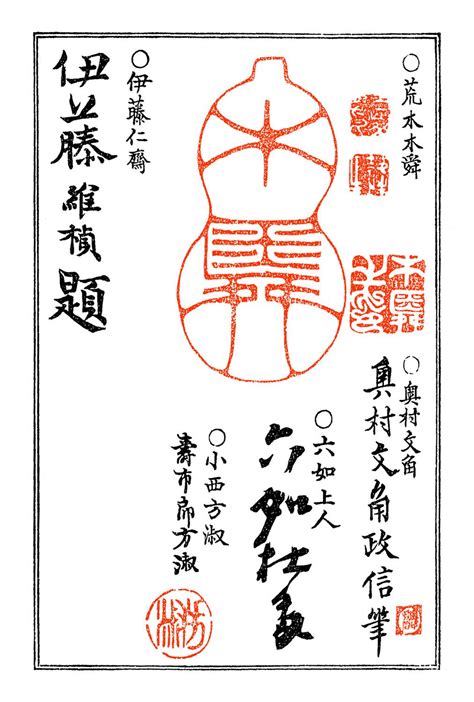 ○荒木木舜
○奥村文角
奥村文角政信筆
○六如上人
六如杜多
○小西方淑
壽市郎方淑
方淑
○伊藤仁齋
伊藤維楨題